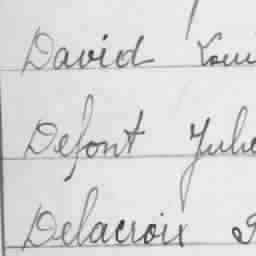 David Loui
Defont Jule
Delacroix